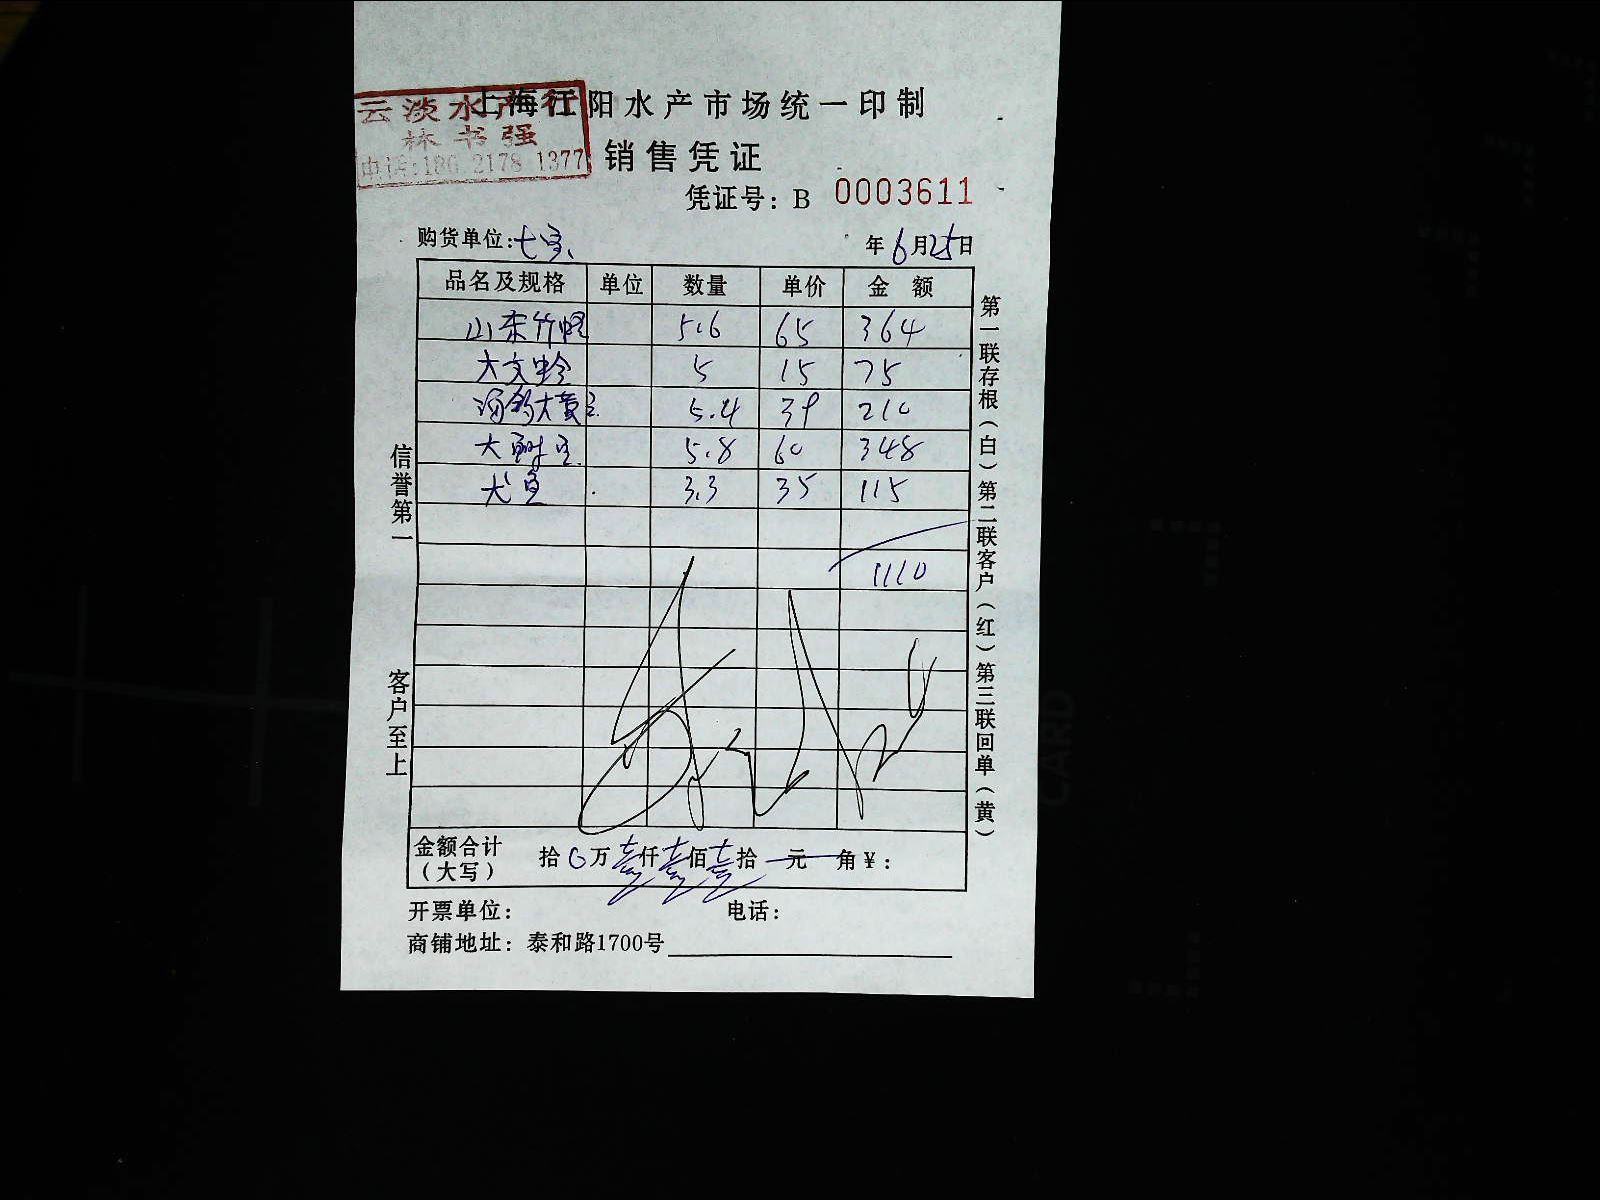 云淡水产行
林书强
电话:180 2178 1377
上海江阳水产市场统一印制
销售凭证
凭证号: B 0003611
购货单位:七宝 年6月25日
品名及规格 单位 数量 单价 金 额
山东竹蛏 5.6 65 364
大文蛤 5 15 75
海钓大黄鱼 5.4 39 210
大鲥鱼 5.8 60 348
犬鱼 3.3 35 115
1110
金额合计(大写) 拾0万壹仟壹佰壹拾 元 角¥:
开票单位: 电话:
商铺地址: 泰和路1700号
信誉第一 客户至上
第一联存根(白)第二联客户(红)第三联回单(黄)